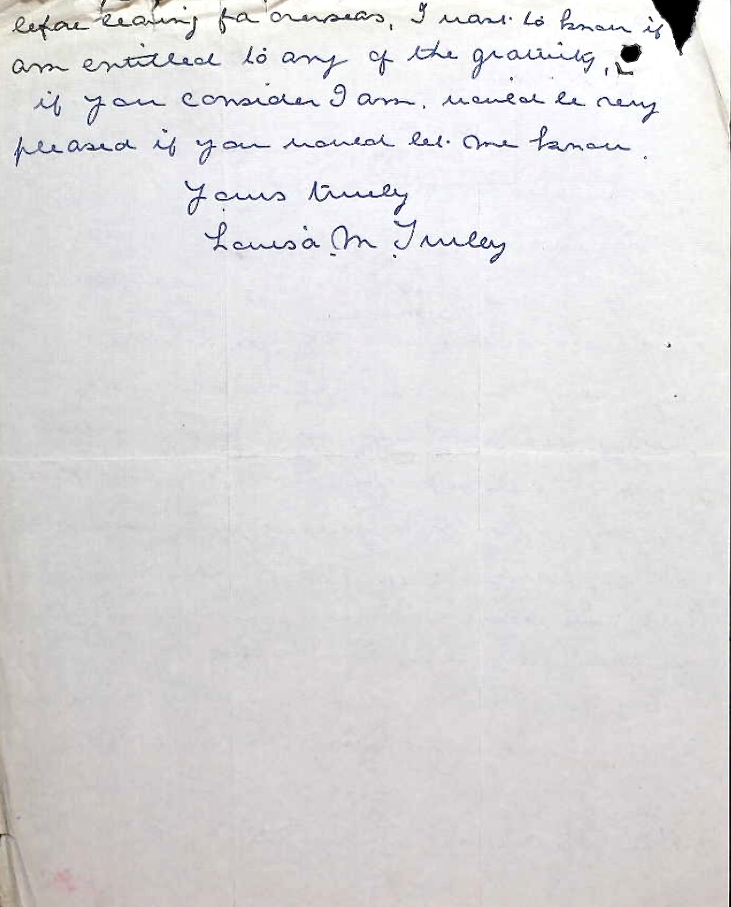 before leaving for overseas, I want to know if
am entitled to any of the gratuity,
if you consider I am. would be very
pleased if you would let me know.
Yours truly
Louisa M